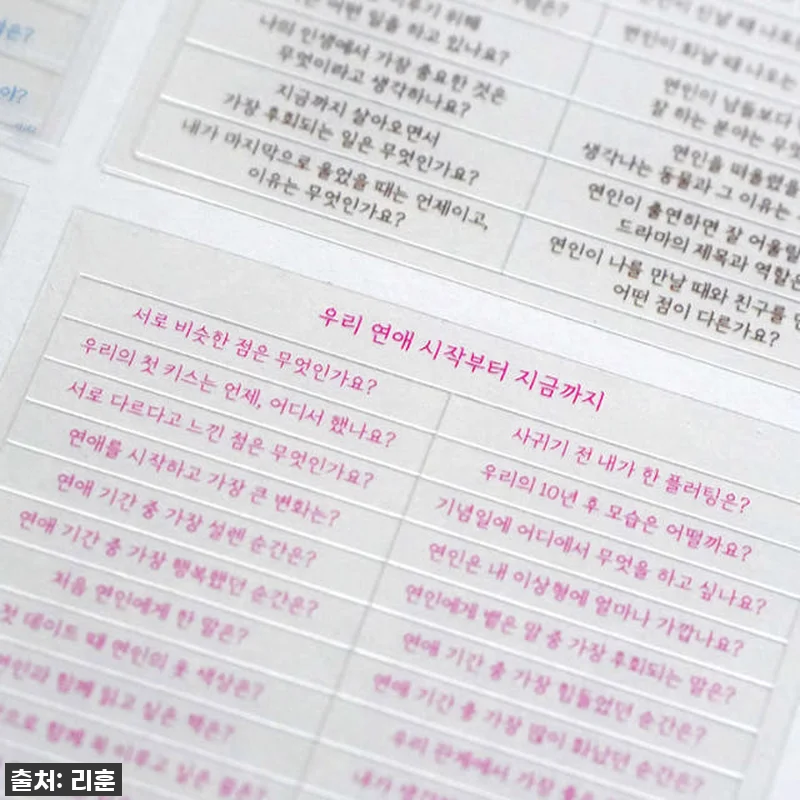 어떤 일을 하고 있나요?
나의 인생에서 가장 중요한 것은
무엇이라고 생각하나요?
지금까지 살아오면서
가장 후회되는 일은 무엇인가요?
내가 마지막으로 울었을 때는 언제이고,
이유는 무엇인가요?
연인이 화날 때 나오는
연인이 남들보다
잘 하는 분야는
연인을 떠올렸을
생각나는 동물과 그 이유는
연인이 출연하면 잘 어울릴
드라마의 제목과 역할은
연인이 나를 만날 때와 친구를
어떤 점이 다른가요?
우리 연애 시작부터 지금까지
서로 비슷한 점은 무엇인가요?
우리의 첫 키스는 언제, 어디서 했나요?
서로 다르다고 느낀 점은 무엇인가요?
연애를 시작하고 가장 큰 변화는?
연애 기간 중 가장 설렌 순간은?
연애 기간 중 가장 행복했던 순간은?
처음 연인에게 한 말은?
첫 데이트 때 연인의 옷 색상은?
함께 읽고 싶은 책은?
함께 꼭 이루고 싶은 꿈은?
사귀기 전 내가 한 플러팅은?
우리의 10년 후 모습은 어떨까요?
기념일에 어디에서 무엇을 하고 싶나요?
연인은 내 이상형에 얼마나 가깝나요?
연인에게 뱉은 말 중 가장 후회되는 말은?
연애 기간 중 가장 힘들었던 순간은?
연애 기간 중 가장 많이 화났던 순간은?
우리 관계에서 가장
내가
출처: 리훈